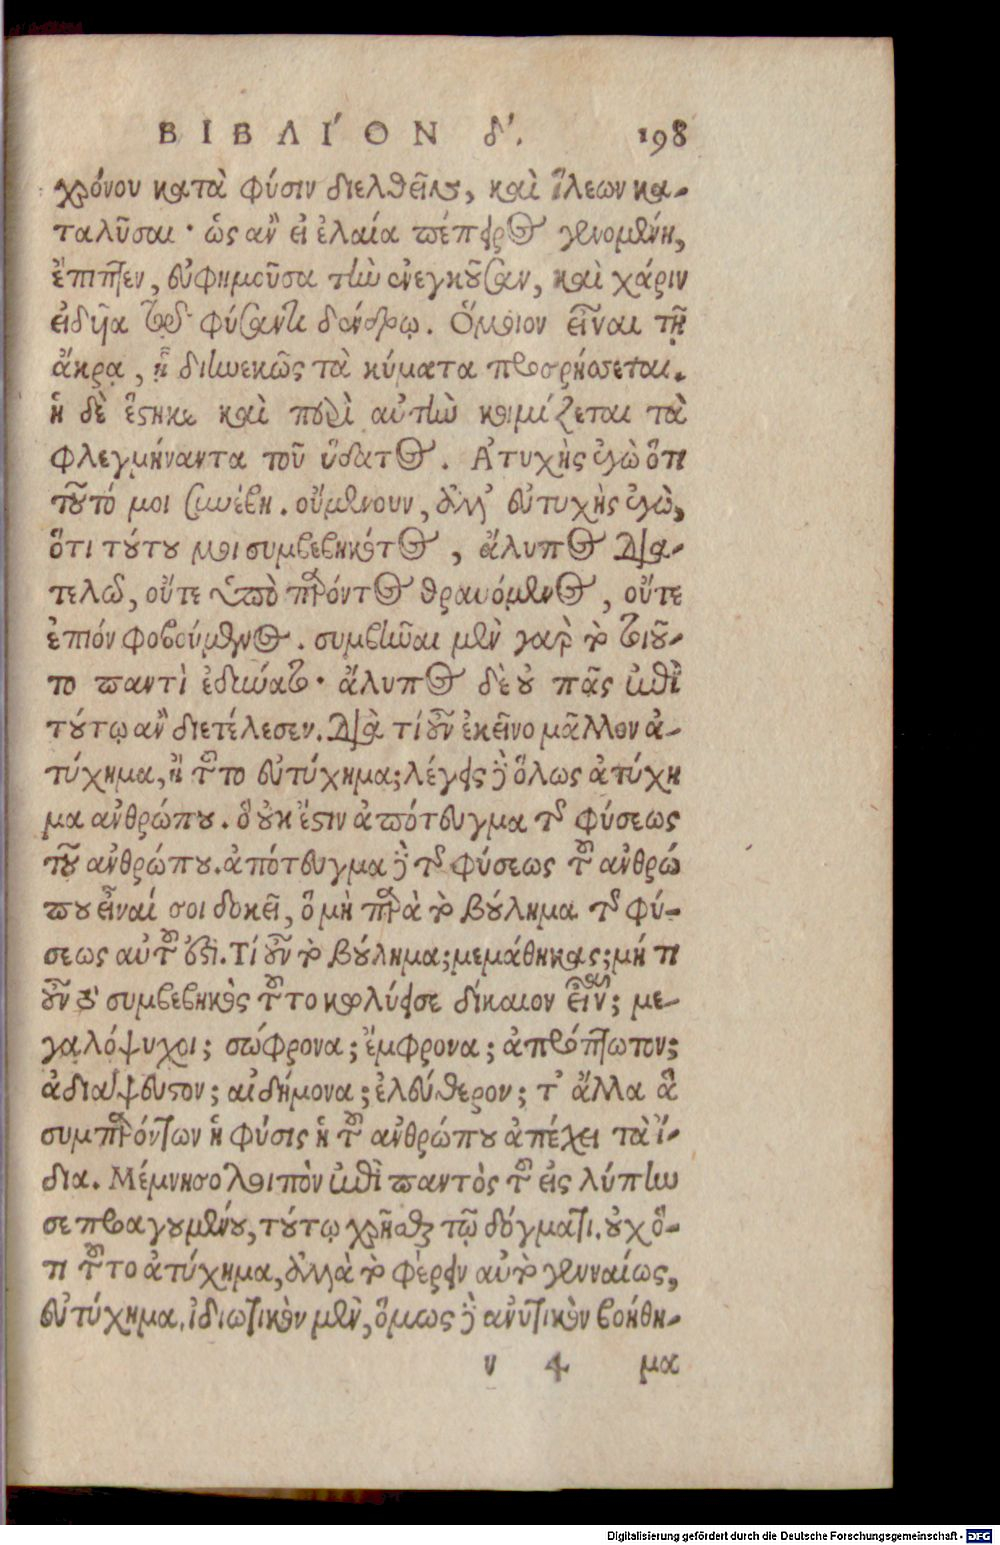 ΒΙΒΛΊΟΝ δ'. 198
χρόνου κατὰ φύσιν διελθεῖν, καὶ ἵλεων κα-
ταλῦσαι· ὡς ἂν εἰ ἐλαία πέπειρος γενομένη,
ἔπιπτεν, εὐφημοῦσα τὴν ἐνεγκοῦσαν, καὶ χάριν
εἰδυῖα τῷ φύσαντι δένδρῳ. Ὅμοιον εἶναι τῇ
ἄκρᾳ, ᾗ διηνεκῶς τὰ κύματα προσρήσσεται.
ἡ δὲ ἕστηκε καὶ περὶ αὐτὴν κοιμίζεται τὰ
φλεγμήναντα τοῦ ὕδατος. Ἀτυχὴς ἐγὼ ὅτι
τοῦτό μοι συνέβη. οὔμενουν, ἀλλ' εὐτυχὴς ἐγὼ,
ὅτι τούτου μοι συμβεβηκότος, ἄλυπος δια-
τελῶ, οὔτε ὑπὸ παρόντος θραυόμενος, οὔτε
ἐπιὸν φοβούμενος. συμβῆναι μὲν γὰρ τὸ τοιοῦ-
το παντὶ ἐδύνατο· ἄλυπος δὲ οὐ πᾶς ἐπὶ
τούτῳ ἂν διετέλεσεν. Διὰ τί οὖν ἐκεῖνο μᾶλλον ἀ-
τύχημα, ἢ τοῦτο εὐτύχημα; λέγεις δὲ ὅλως ἀτύχη
μα ἀνθρώπου. ὃ οὐκ ἔστιν ἀπότευγμα τῆς φύσεως
τοῦ ἀνθρώπου. ἀπότευγμα δὲ τῆς φύσεως τοῦ ἀνθρώ
που εἶναί σοι δοκεῖ, ὃ μὴ παρὰ τὸ βούλημα τῆς φύ-
σεως αὐτοῦ ἐστι. Τί οὖν τὸ βούλημα; μεμάθηκας; μή τι
οὖν τὸ συμβεβηκὸς τοῦτο κωλύει σε δίκαιον εἶναι; με-
γαλόψυχοι; σώφρονα; ἔμφρονα; ἀπρόπτωτον;
ἀδιάψευστον; αἰδήμονα; ἐλεύθερον; τ' ἄλλα ἃ
συμπαρόντων ἡ φύσις ἡ τοῦ ἀνθρώπου ἀπέχει τὰ ἴ-
δια. Μέμνησο λοιπὸν ἐπὶ παντὸς τοῦ εἰς λύπην
σε προαγομένου, τούτῳ χρῆσθαι τῷ δόγματι. οὐχ ὅ-
τι τοῦτο ἀτύχημα, ἀλλὰ τὸ φέρειν αὐτὸ γενναίως,
εὐτύχημα. ἰδιωτικὸν μὲν, ὅμως δὲ ἀνυτικὸν βοήθη-
υ 4 μα
Digitalisierung gefördert durch die Deutsche Forschungsgemeinschaft - DFG